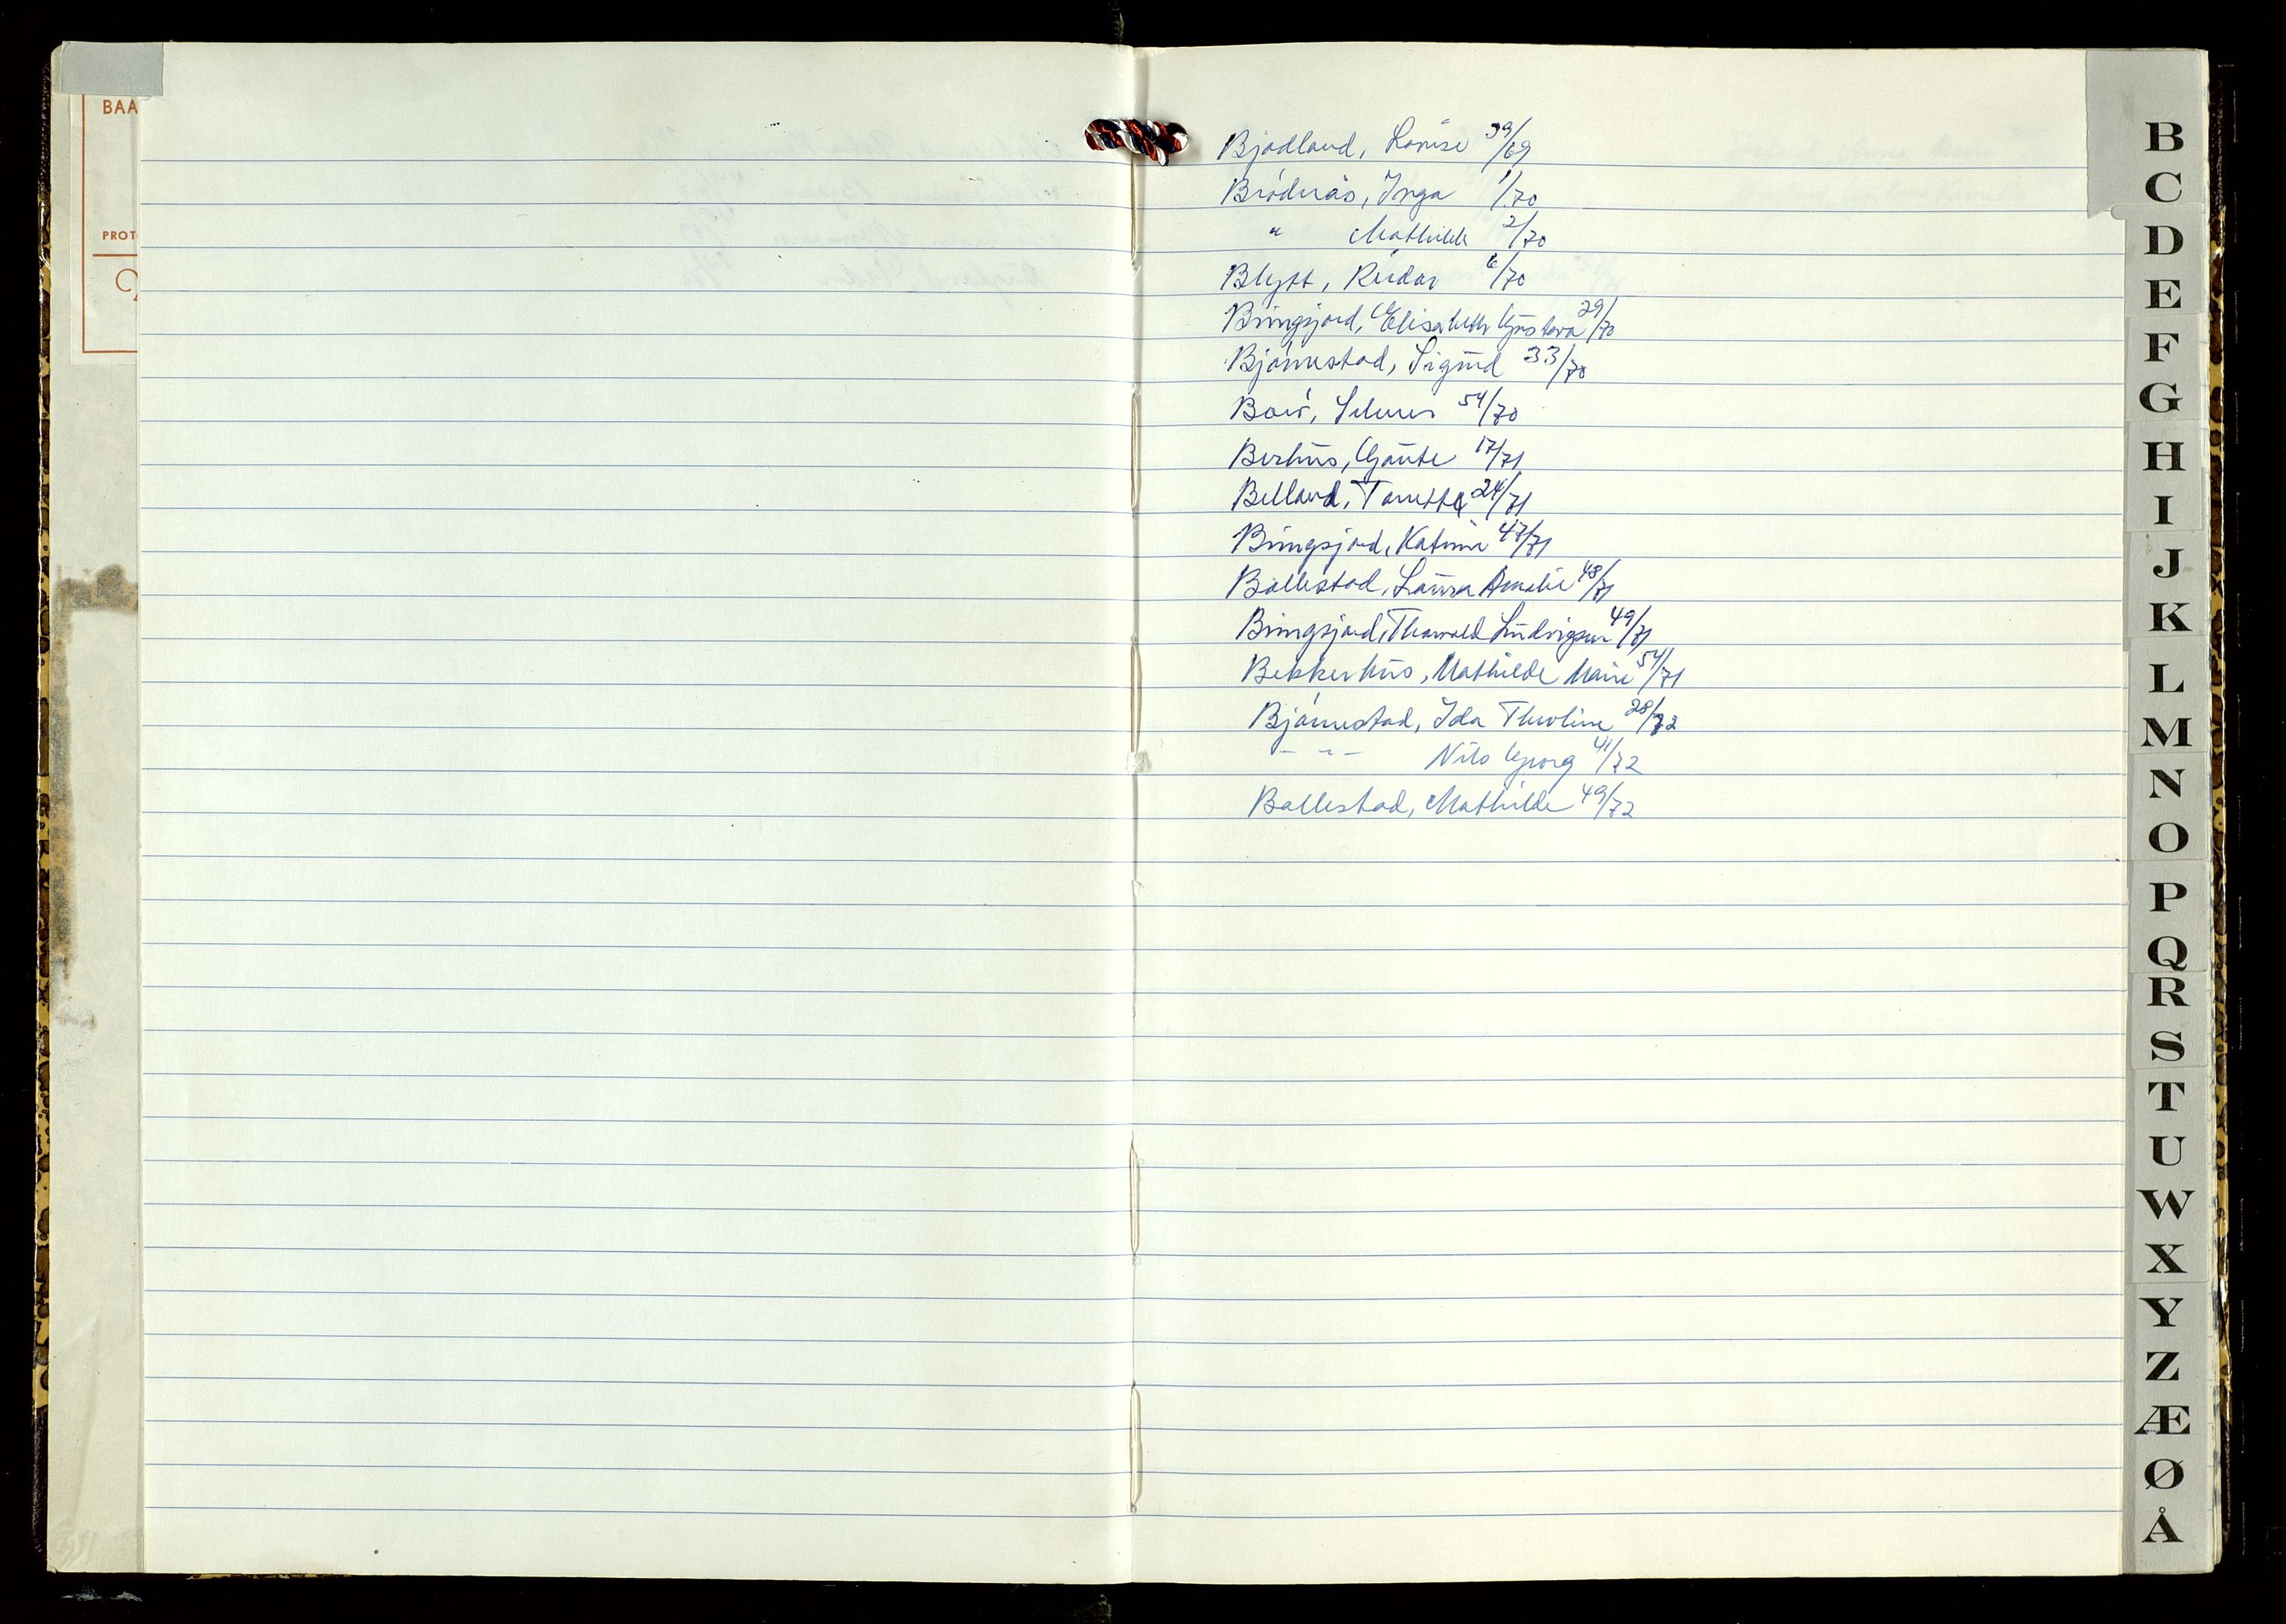 BAA
PROT
Bjodland, Louise 39/69
Brødnäs, Inga 1/70
" Mathilde 2/70
Blytt, Reidar 6/70
Bringsjord, Elisabeth Gustava 29/70
Bjørnestad, Sigurd 33/70
Boié, Selmer 54/70
Berhus, Gaute 17/71
Belland, Tonette 24/71
Bringsjord, Katrine 47/71
Bollestad, Laura Amalie 48/71
Bringsjord, Thorvald Ludvigsen 49/71
Bekkerhus, Mathilde Marie 54/71
Bjørnestad, Ida Theoline 28/72
- " - Nils Georg 41/72
Bollestad, Mathilde 49/72
B
C
D
E
F
G
H
I
J
K
L
M
N
O
P
Q
R
S
T
U
W
X
Y
Z
Æ
Ø
Å